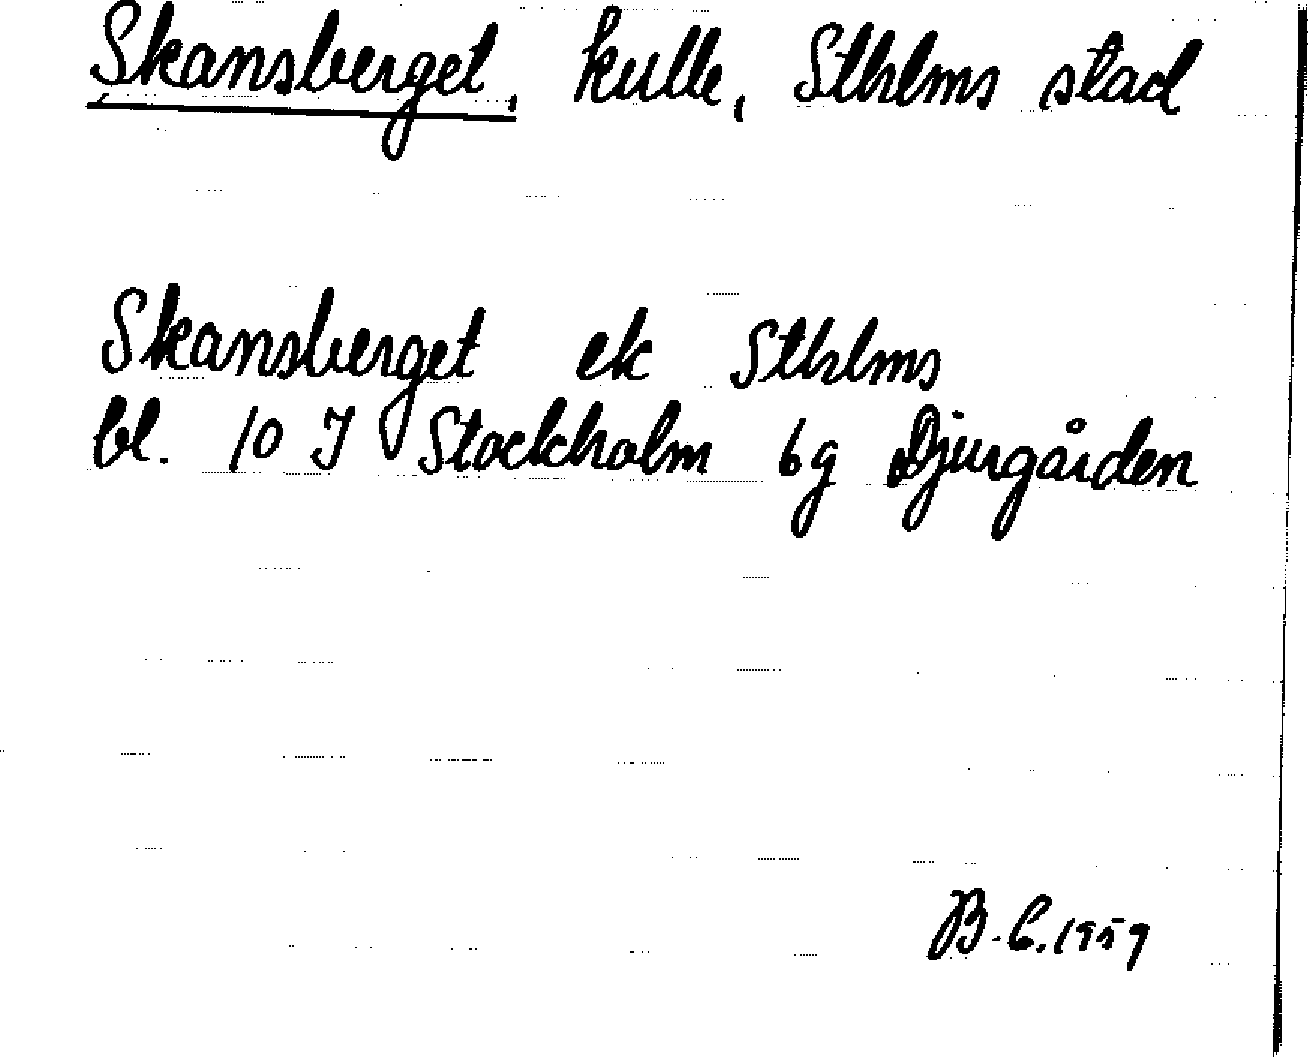 Skansberget, kulle, Sthlms stad
Skansberget ek Sthlms
bl. 10 I Stockholm 6g Djurgården
B.C. 1959